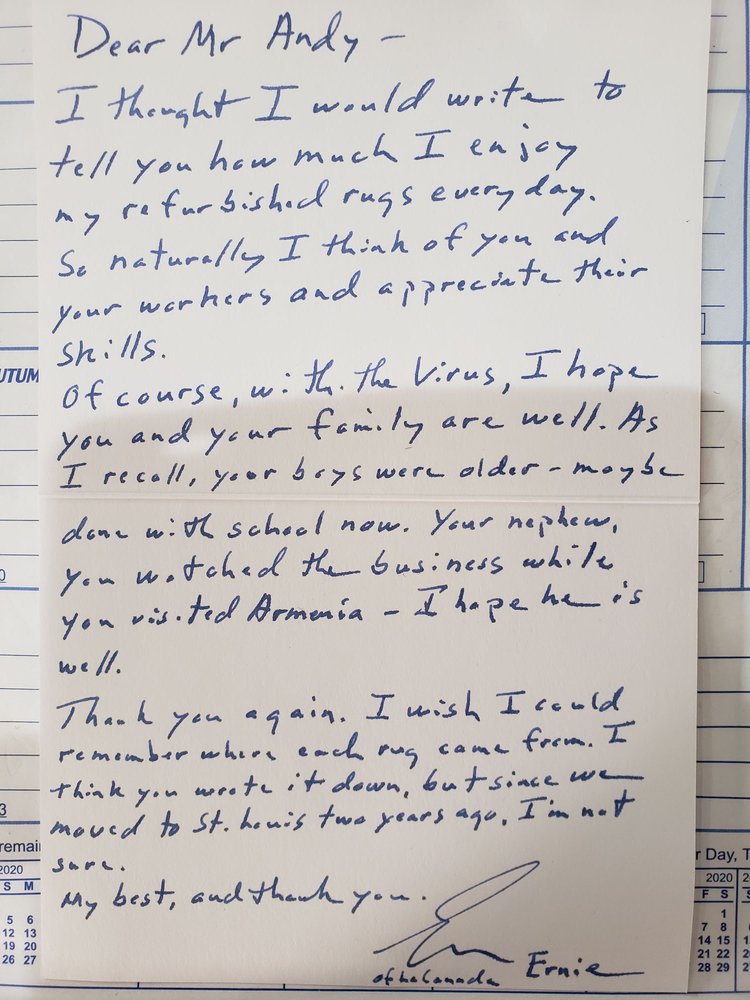 Dear Mr Andy -
I thought I would write to
tell you how much I enjoy
my refurbished rugs everyday.
So naturally I think of you and
your workers and appreciate their
skills.
Of course, with the Virus, I hope
you and your family are well. As
I recall, your boys were older - maybe
done with school now. Your nephew,
you watched the business while
you visited Armenia - I hope he is
well.
Thank you again. I wish I could
remember where each rug came from. I
think you wrote it down, but since we
moved to St. Louis two years ago, I'm not
sure.
My best, and thank you.
Ernie
of La Canada
UTUM
0
3
remai
2020
S M
5 6
12 13
19 20
26 27
r Day, T
2020 2
F S
1
7 8
14 15
21 22
28 29